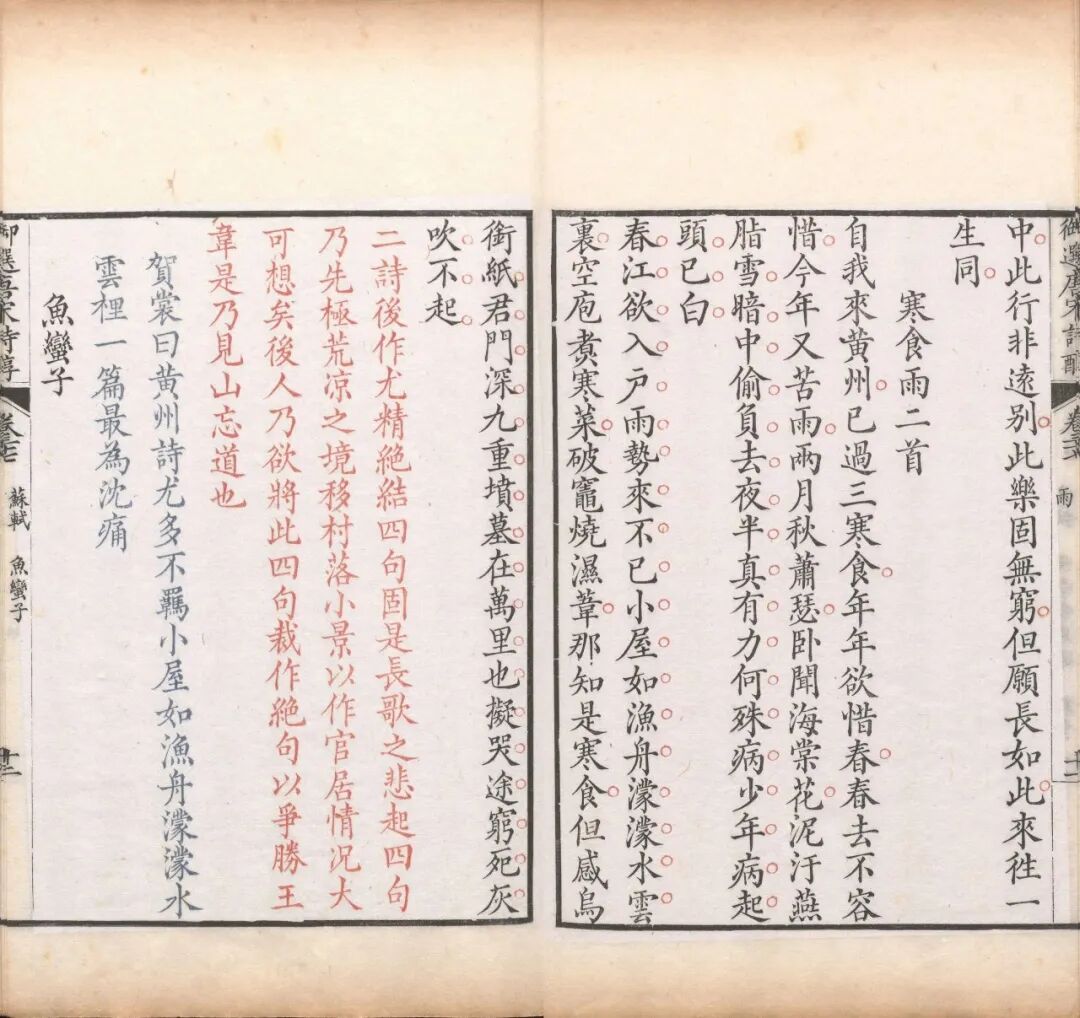 中此行非遠別此樂固無窮但願長如此來往一
生同
寒食雨二首
自我來黃州已過三寒食年年欲惜春春去不容
惜今年又苦雨兩月秋蕭瑟卧聞海棠花泥汙燕
脂雪暗中偷負去夜半真有力何殊病少年病起
頭已白
春江欲入戶雨勢來不已小屋如漁舟濛濛水雲
裏空庖煮寒菜破竈燒濕葦那知是寒食但感烏
銜紙君門深九重墳墓在萬里也擬哭途窮死灰
吹不起
二詩後作尤精絶結四句固是長歌之悲起四句
乃先極荒凉之境移村落小景以作官居情況大
可想矣後人乃欲將此四句裁作絶句以爭勝王
韋是乃見山忘道也
賀裳曰黄州詩尤多不羈小屋如漁舟濛濛水
雲裡一篇最為沈痛
魚蠻子
御選唐宋詩醇
蘇軾 魚蠻子
十二